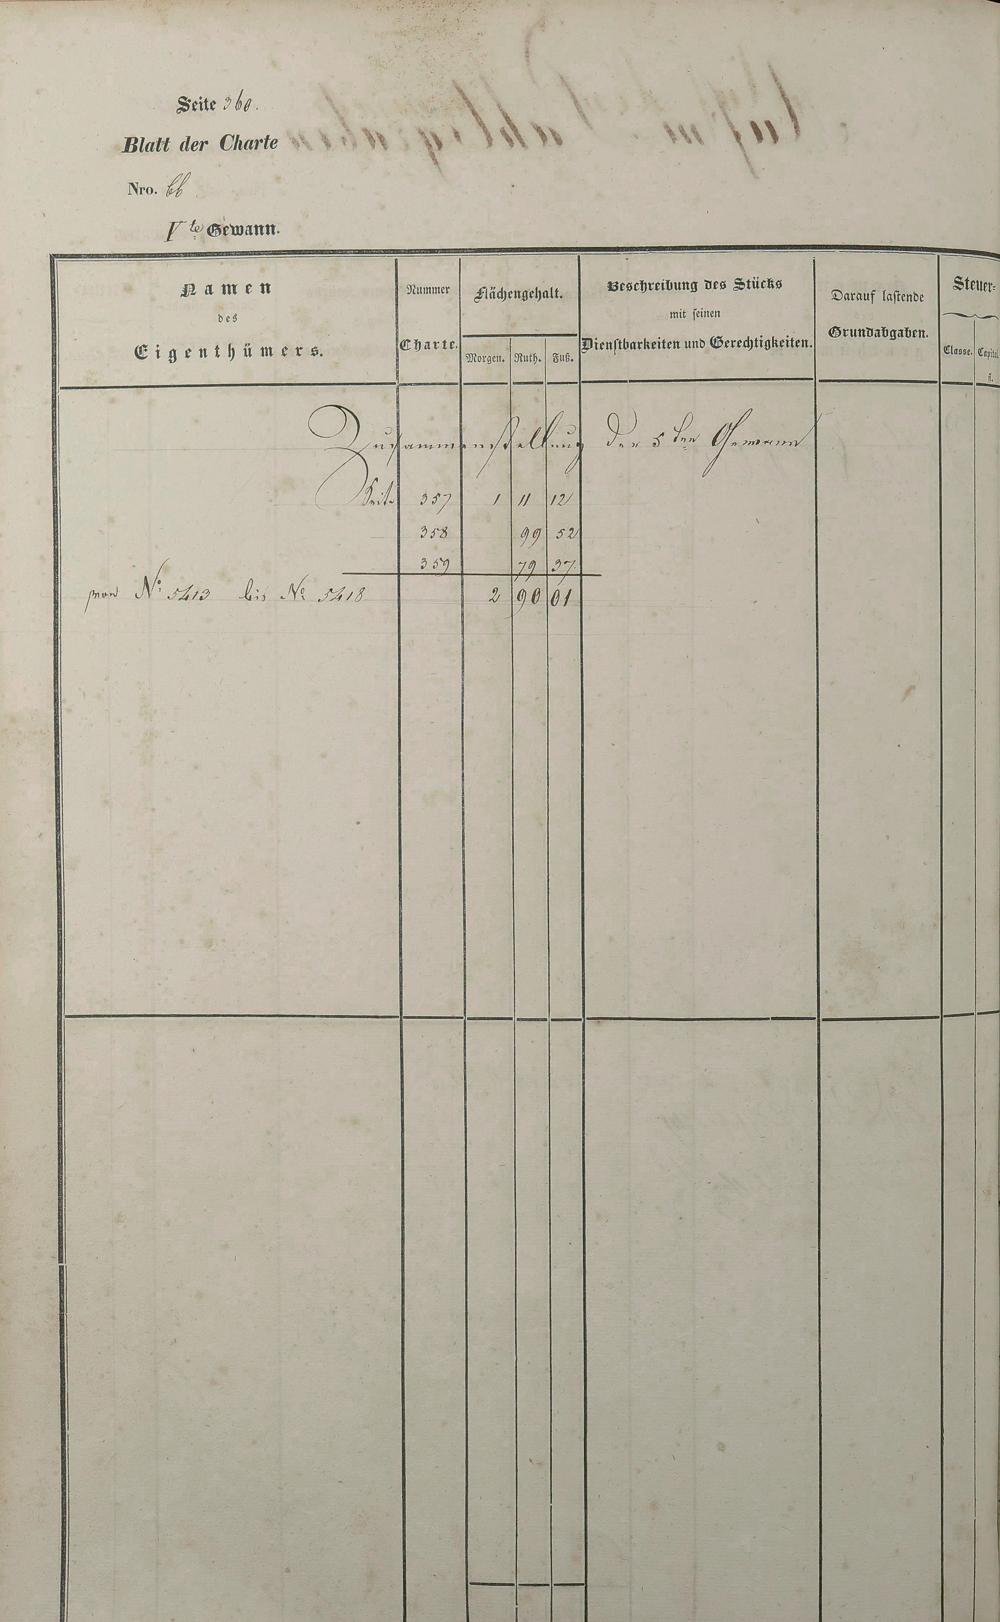 Seite 360.
Blatt der Charte
Nro. 66
Vte Gewann.
Namen
des
Eigenthümers.
Nummer
Charte.
Flächengehalt.
Morgen. Ruth. Fuß.
Beschreibung des Stücks
mit seinen
Dienstbarkeiten und Gerechtigkeiten.
Darauf lastende
Grundabgaben.
Steuer-
Classe. Capital
fl.
Zusammenstellung der 5ten Gewann
Seite 357 1 11 12
358 99 52
359 79 37
von No. 5413 bis No. 5418 2 90 01